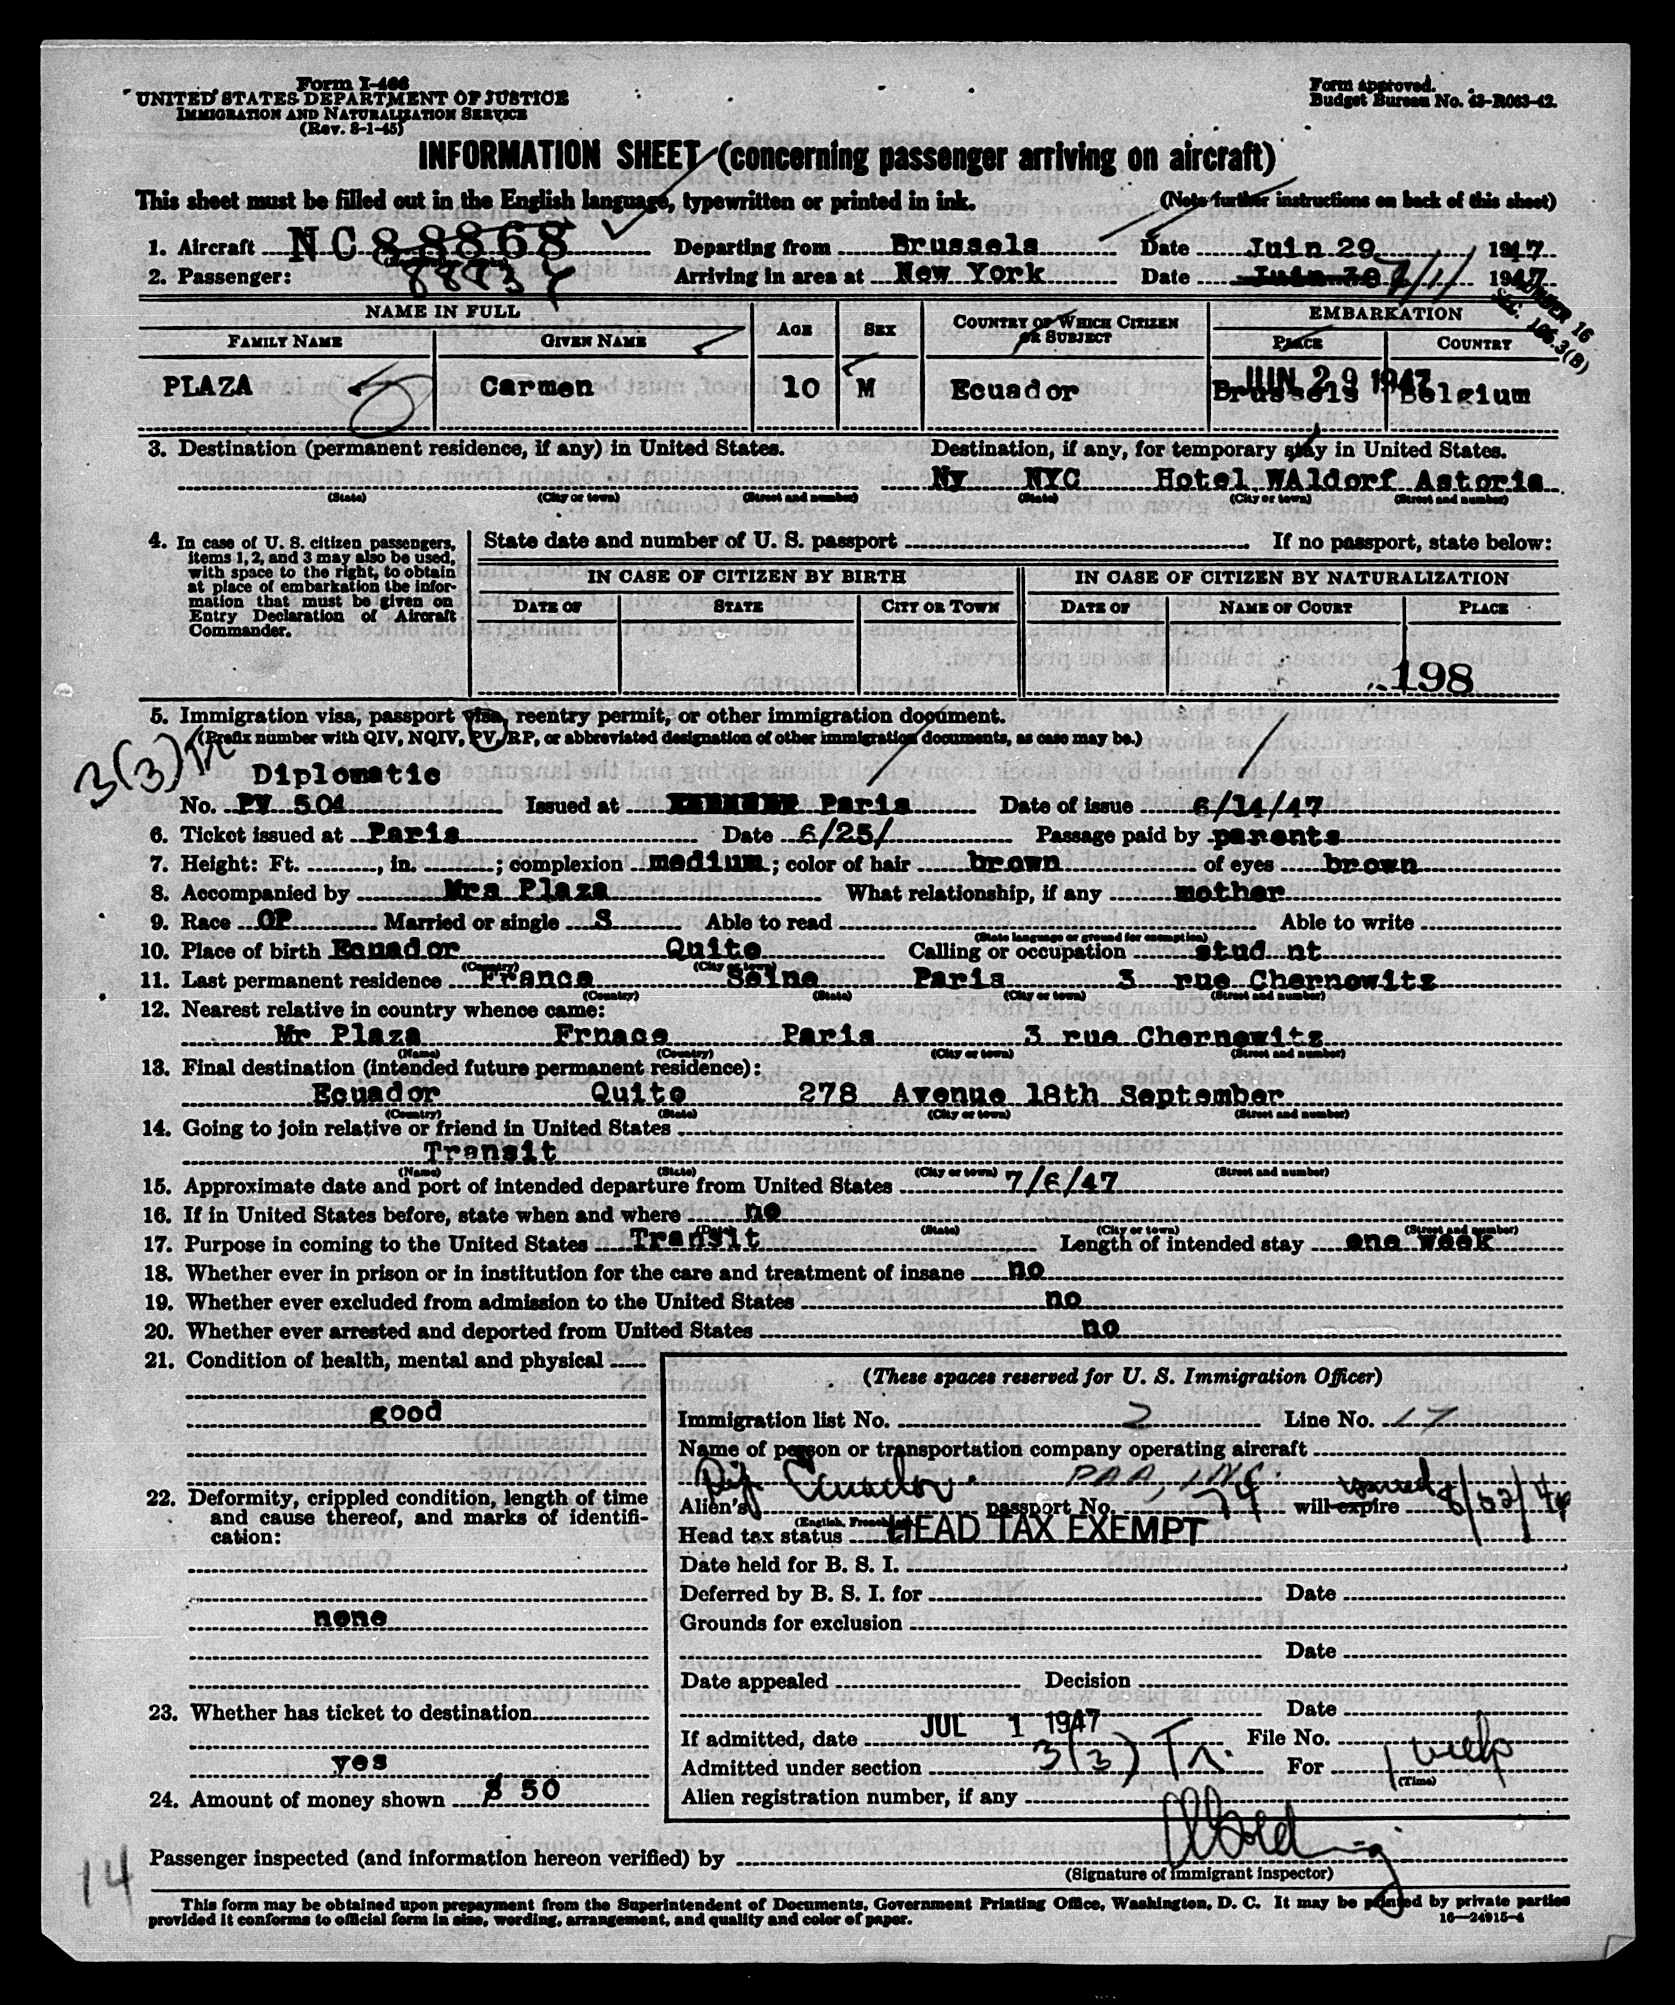 Form I-466
UNITED STATES DEPARTMENT OF JUSTICE
IMMIGRATION AND NATURALIZATION SERVICE
(Rev. 8-1-45)
Form approved.
Budget Bureau No. 43-R063-42.
INFORMATION SHEET (concerning passenger arriving on aircraft)
This sheet must be filled out in the English language, typewritten or printed in ink. (Note further instructions on back of this sheet)
1. Aircraft NC 88868 Departing from Brussels Date Juin 29 1947
2. Passenger: Arriving in area at New York Date Juin 30 7/1/ 1947
UNDER 16
SEC. 105.3(B)
NAME IN FULL AGE SEX COUNTRY OF WHICH CITIZEN OR SUBJECT EMBARKATION
FAMILY NAME GIVEN NAME PLACE COUNTRY
JUN 29 1947
PLAZA Carmen 10 M Ecuador Brussels Belgium
3. Destination (permanent residence, if any) in United States. Destination, if any, for temporary stay in United States.
Ny NYC Hotel WAldorf Astoria
(State) (City or town) (Street and number) (State) (City or town) (Street and number)
4. In case of U. S. citizen passengers, items 1, 2, and 3 may also be used, with space to the right, to obtain at place of embarkation the information that must be given on Entry Declaration of Aircraft Commander.
State date and number of U. S. passport If no passport, state below:
IN CASE OF CITIZEN BY BIRTH IN CASE OF CITIZEN BY NATURALIZATION
DATE OF STATE CITY OR TOWN DATE OF NAME OF COURT PLACE
198
5. Immigration visa, passport visa, reentry permit, or other immigration document.
(Prefix number with QIV, NQIV, PV, RP, or abbreviated designation of other immigration documents, as case may be.)
3(3)Tr
Diplomatic
No. PV 504 Issued at Paris Date of issue 6/14/47
6. Ticket issued at Paris Date 6/25/ Passage paid by parents
7. Height: Ft. , in. ; complexion medium ; color of hair brown of eyes brown
8. Accompanied by Mrs Plaza What relationship, if any mother
9. Race OP Married or single S Able to read Able to write
(State language or ground for exemption)
10. Place of birth Ecuador Quito Calling or occupation stud nt
(Country) (City or town)
11. Last permanent residence France Seine Paris 3 rue Chernowitz
(Country) (State) (City or town) (Street and number)
12. Nearest relative in country whence came:
Mr Plaza Frnace Paris 3 rue Chernowitz
(Name) (Country) (City or town) (Street and number)
13. Final destination (intended future permanent residence):
Ecuador Quito 278 Avenue 18th September
(Country) (State) (City or town) (Street and number)
14. Going to join relative or friend in United States
Transit
(Name) (State) (City or town) (Street and number)
15. Approximate date and port of intended departure from United States 7/6/47
16. If in United States before, state when and where no
(Date) (State) (City or town) (Street and number)
17. Purpose in coming to the United States Transit Length of intended stay one week
18. Whether ever in prison or in institution for the care and treatment of insane no
19. Whether ever excluded from admission to the United States no
20. Whether ever arrested and deported from United States no
21. Condition of health, mental and physical
good
22. Deformity, crippled condition, length of time and cause thereof, and marks of identification:
none
23. Whether has ticket to destination
yes
24. Amount of money shown $ 50
(These spaces reserved for U. S. Immigration Officer)
Immigration list No. 2 Line No. 17
Name of person or transportation company operating aircraft
Dip Ecuador PAA INC.
Alien's passport No. 74 will expire issued
Head tax status HEAD TAX EXEMPT
Date held for B. S. I.
Deferred by B. S. I. for Date
Grounds for exclusion
Date
Date appealed Decision
Date
If admitted, date JUL 1 1947 File No.
Admitted under section 3(3) Tr. For 1 week
(Time)
Alien registration number, if any
14
Passenger inspected (and information hereon verified) by
(Signature of Immigrant Inspector)
This form may be obtained upon prepayment from the Superintendent of Documents, Government Printing Office, Washington, D. C. It may be printed by private parties
provided it conforms to official form in size, wording, arrangement, and quality and color of paper. 16—24915-4